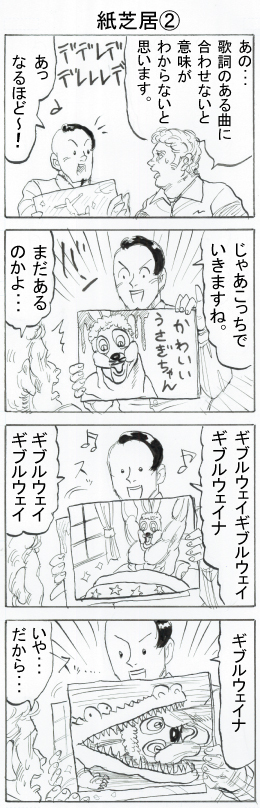 紙芝居②
あの･･･
歌詞のある曲に
合わせないと
意味が
わからないと
思います。
デデレデ
デレレレデ
あっ
なるほど～!
じゃあこっちで
いきますね。
かわいい
うさぎちゃん
まだある
のかよ･･･
ギブルウェイギブルウェイ
ギブルウェイナ
スッ
ギブルウェイ
ギブルウェイ
ギブルウェイナ
いや･･･
だから･･･